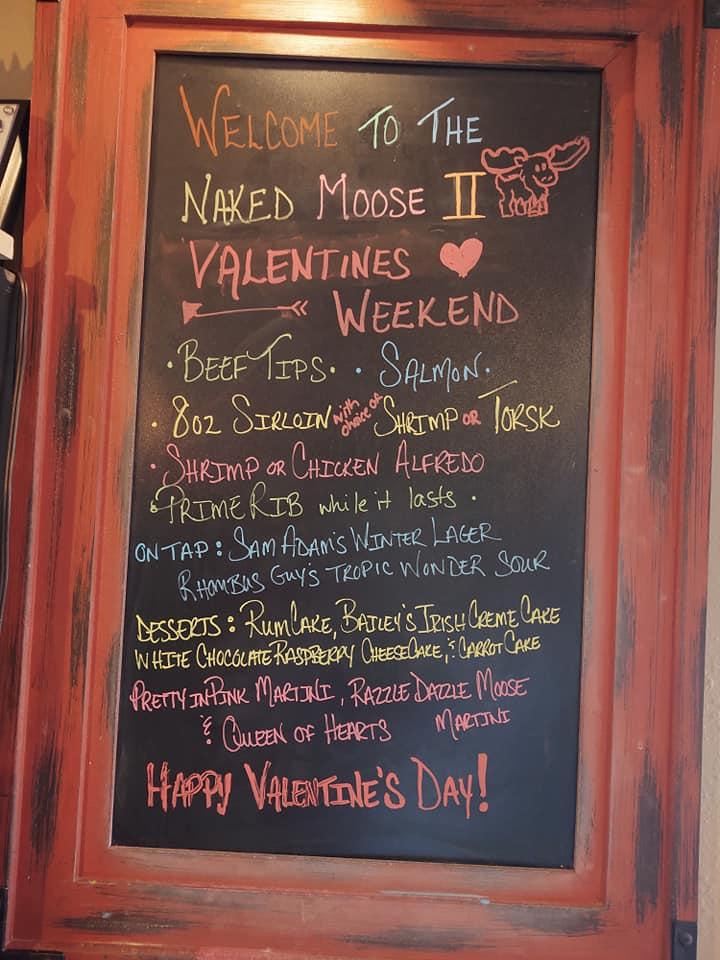 WELCOME TO THE
NAKED MOOSE II
VALENTINES
WEEKEND
• BEEF TIPS • • SALMON •
• 8OZ SIRLOIN with choice of SHRIMP OR TORSK
• SHRIMP OR CHICKEN ALFREDO
• PRIME RIB while it lasts •
ON TAP : SAM ADAM'S WINTER LAGER
RHOMBUS GUY'S TROPIC WONDER SOUR
DESSERTS : RUM CAKE, BAILEY'S IRISH CREME CAKE
WHITE CHOCOLATE RASPBERRY CHEESECAKE, & CARROT CAKE
PRETTY IN PINK MARTINI, RAZZLE DAZZLE MOOSE
MARTINI
& QUEEN OF HEARTS
HAPPY VALENTINE'S DAY!